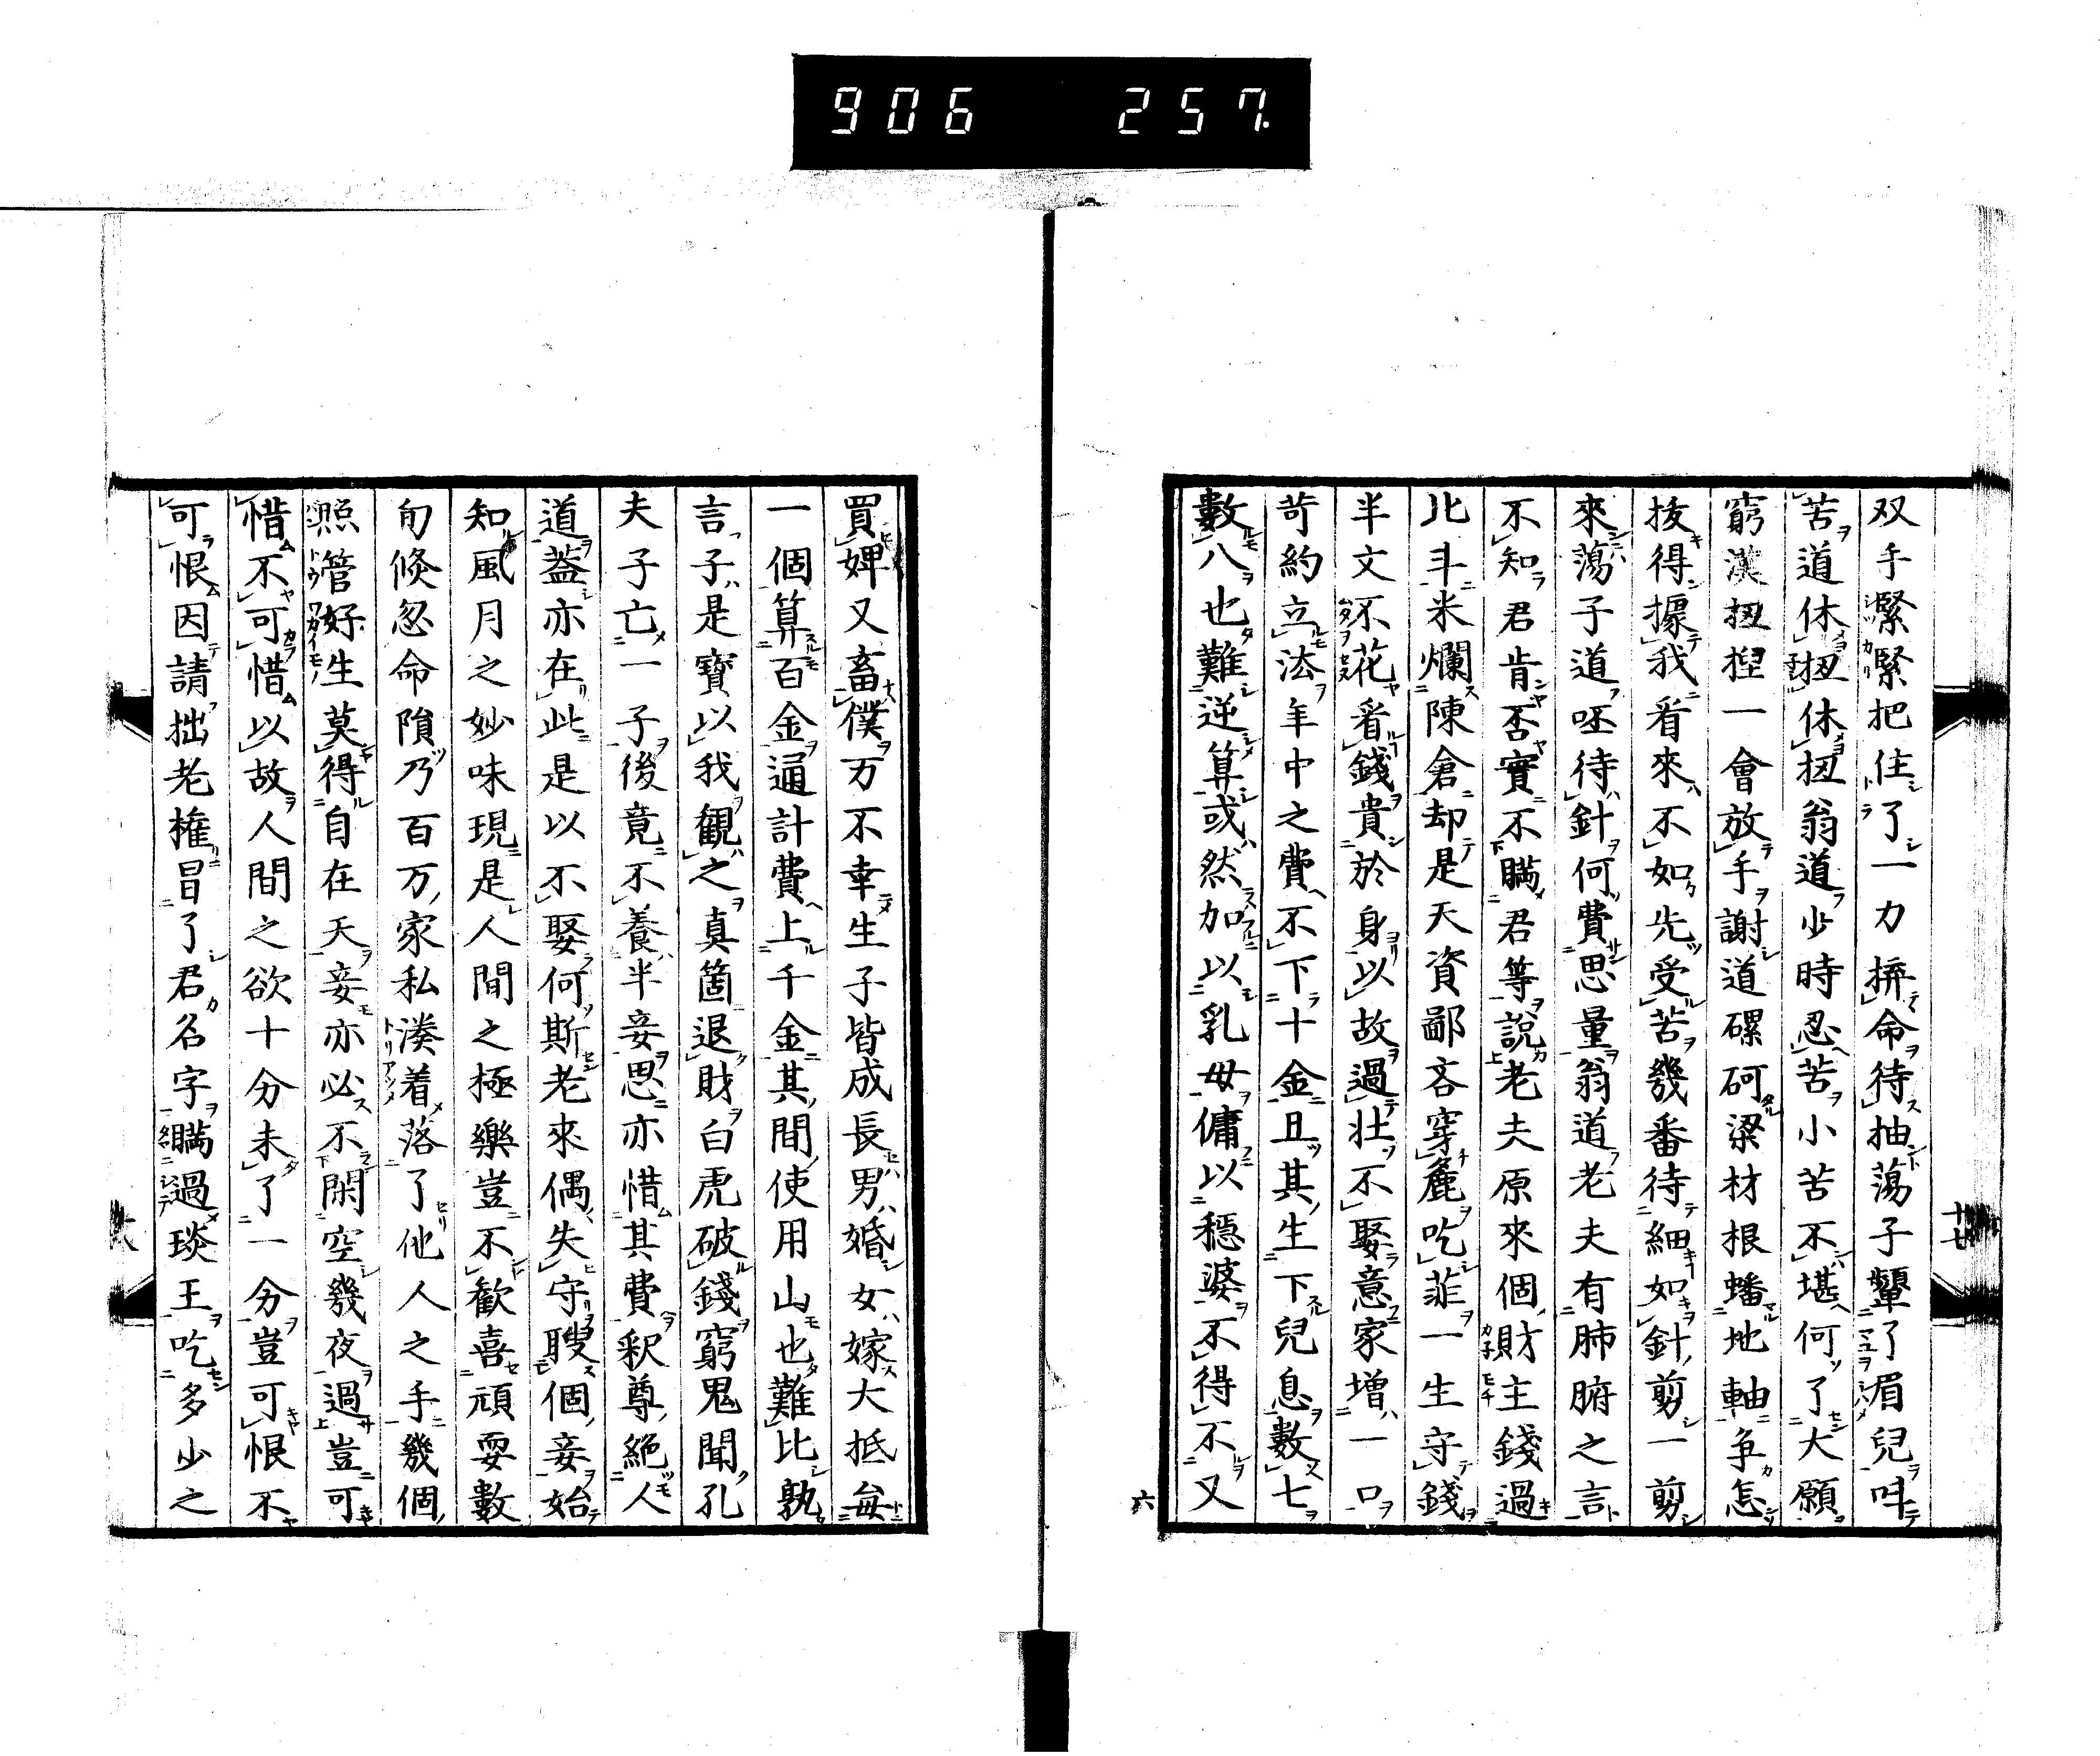 906 257.
十七
双手緊緊把住了一力拚命待抽蕩子顰了眉兒呌
苦道休扭休扭翁道少時忍苦小苦不堪何了大願
窮漢扭捏一會放手謝道磥砢梁材根蟠地軸争怎
拔得據我看來不如先受苦幾番待細如針剪一剪
來蕩子道呸待針何費思量翁道老夫有肺腑之言
不知君肯否實不瞞君等說老夫原來個財主錢過
北斗米爛陳倉却是天資鄙吝穿麁吃菲一生守錢
半文不花看錢貴於身以故過壮不娶意家增一口
苛約立法年中之費不下十金且其生下兒息數七
數八也難逆算或然加以乳母傭以穩婆不得不又
六
買婢又畜僕万不幸生子皆成長男婚女嫁大抵每
一個算百金通計費上千金其間使用山也難比孰
言子是寶以我観之真箇退財白虎破錢窮鬼聞孔
夫子亡一子後竟不養半妾思亦惜其費釈尊絕人
道蓋亦在此是以不娶何斯老來偶失守聘個妾始
知風月之妙味現是人間之極樂豈不歓喜頑耍數
旬倏忽命隕乃百万家私湊着落了他人之手幾個
照管好生莫得自在天妾亦必不閑空幾夜過豈可
惜不可惜以故人間之欲十分未了一分豈可恨不
可恨因請拙老権冒了君名字瞞過琰王吃多少之